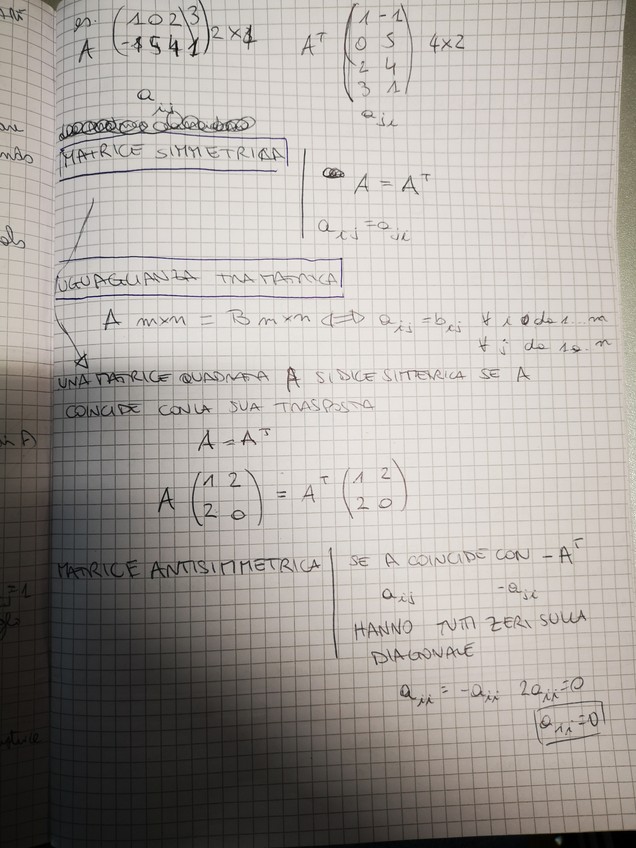 es.
A (1 0 2 3
-1 5 4 1) 2×4
A^T (1 -1
0 5
2 4
3 1) 4×2
a_ij
a_ji
MATRICE SIMMETRICA
A = A^T
a_ij = a_ji
UGUAGLIANZA TRA MATRICA
A m×n = B m×n ⟺ a_ij = b_ij ∀ i da 1...m
∀ j da 1a n
UNA MATRICE QUADRATA A SI DICE SIMMETRICA SE A
COINCIDE CON LA SUA TRASPOSTA
A = A^T
A (1 2
2 0) = A^T (1 2
2 0)
MATRICE ANTISIMMETRICA
SE A COINCIDE CON -A^T
a_ij -a_ji
HANNO TUTTI ZERI SULLA
DIAGONALE
a_ii = -a_ii 2a_ii = 0
a_ii = 0